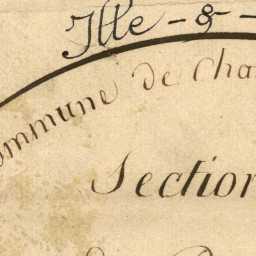 Ille - & -
ommune de Cha
Section